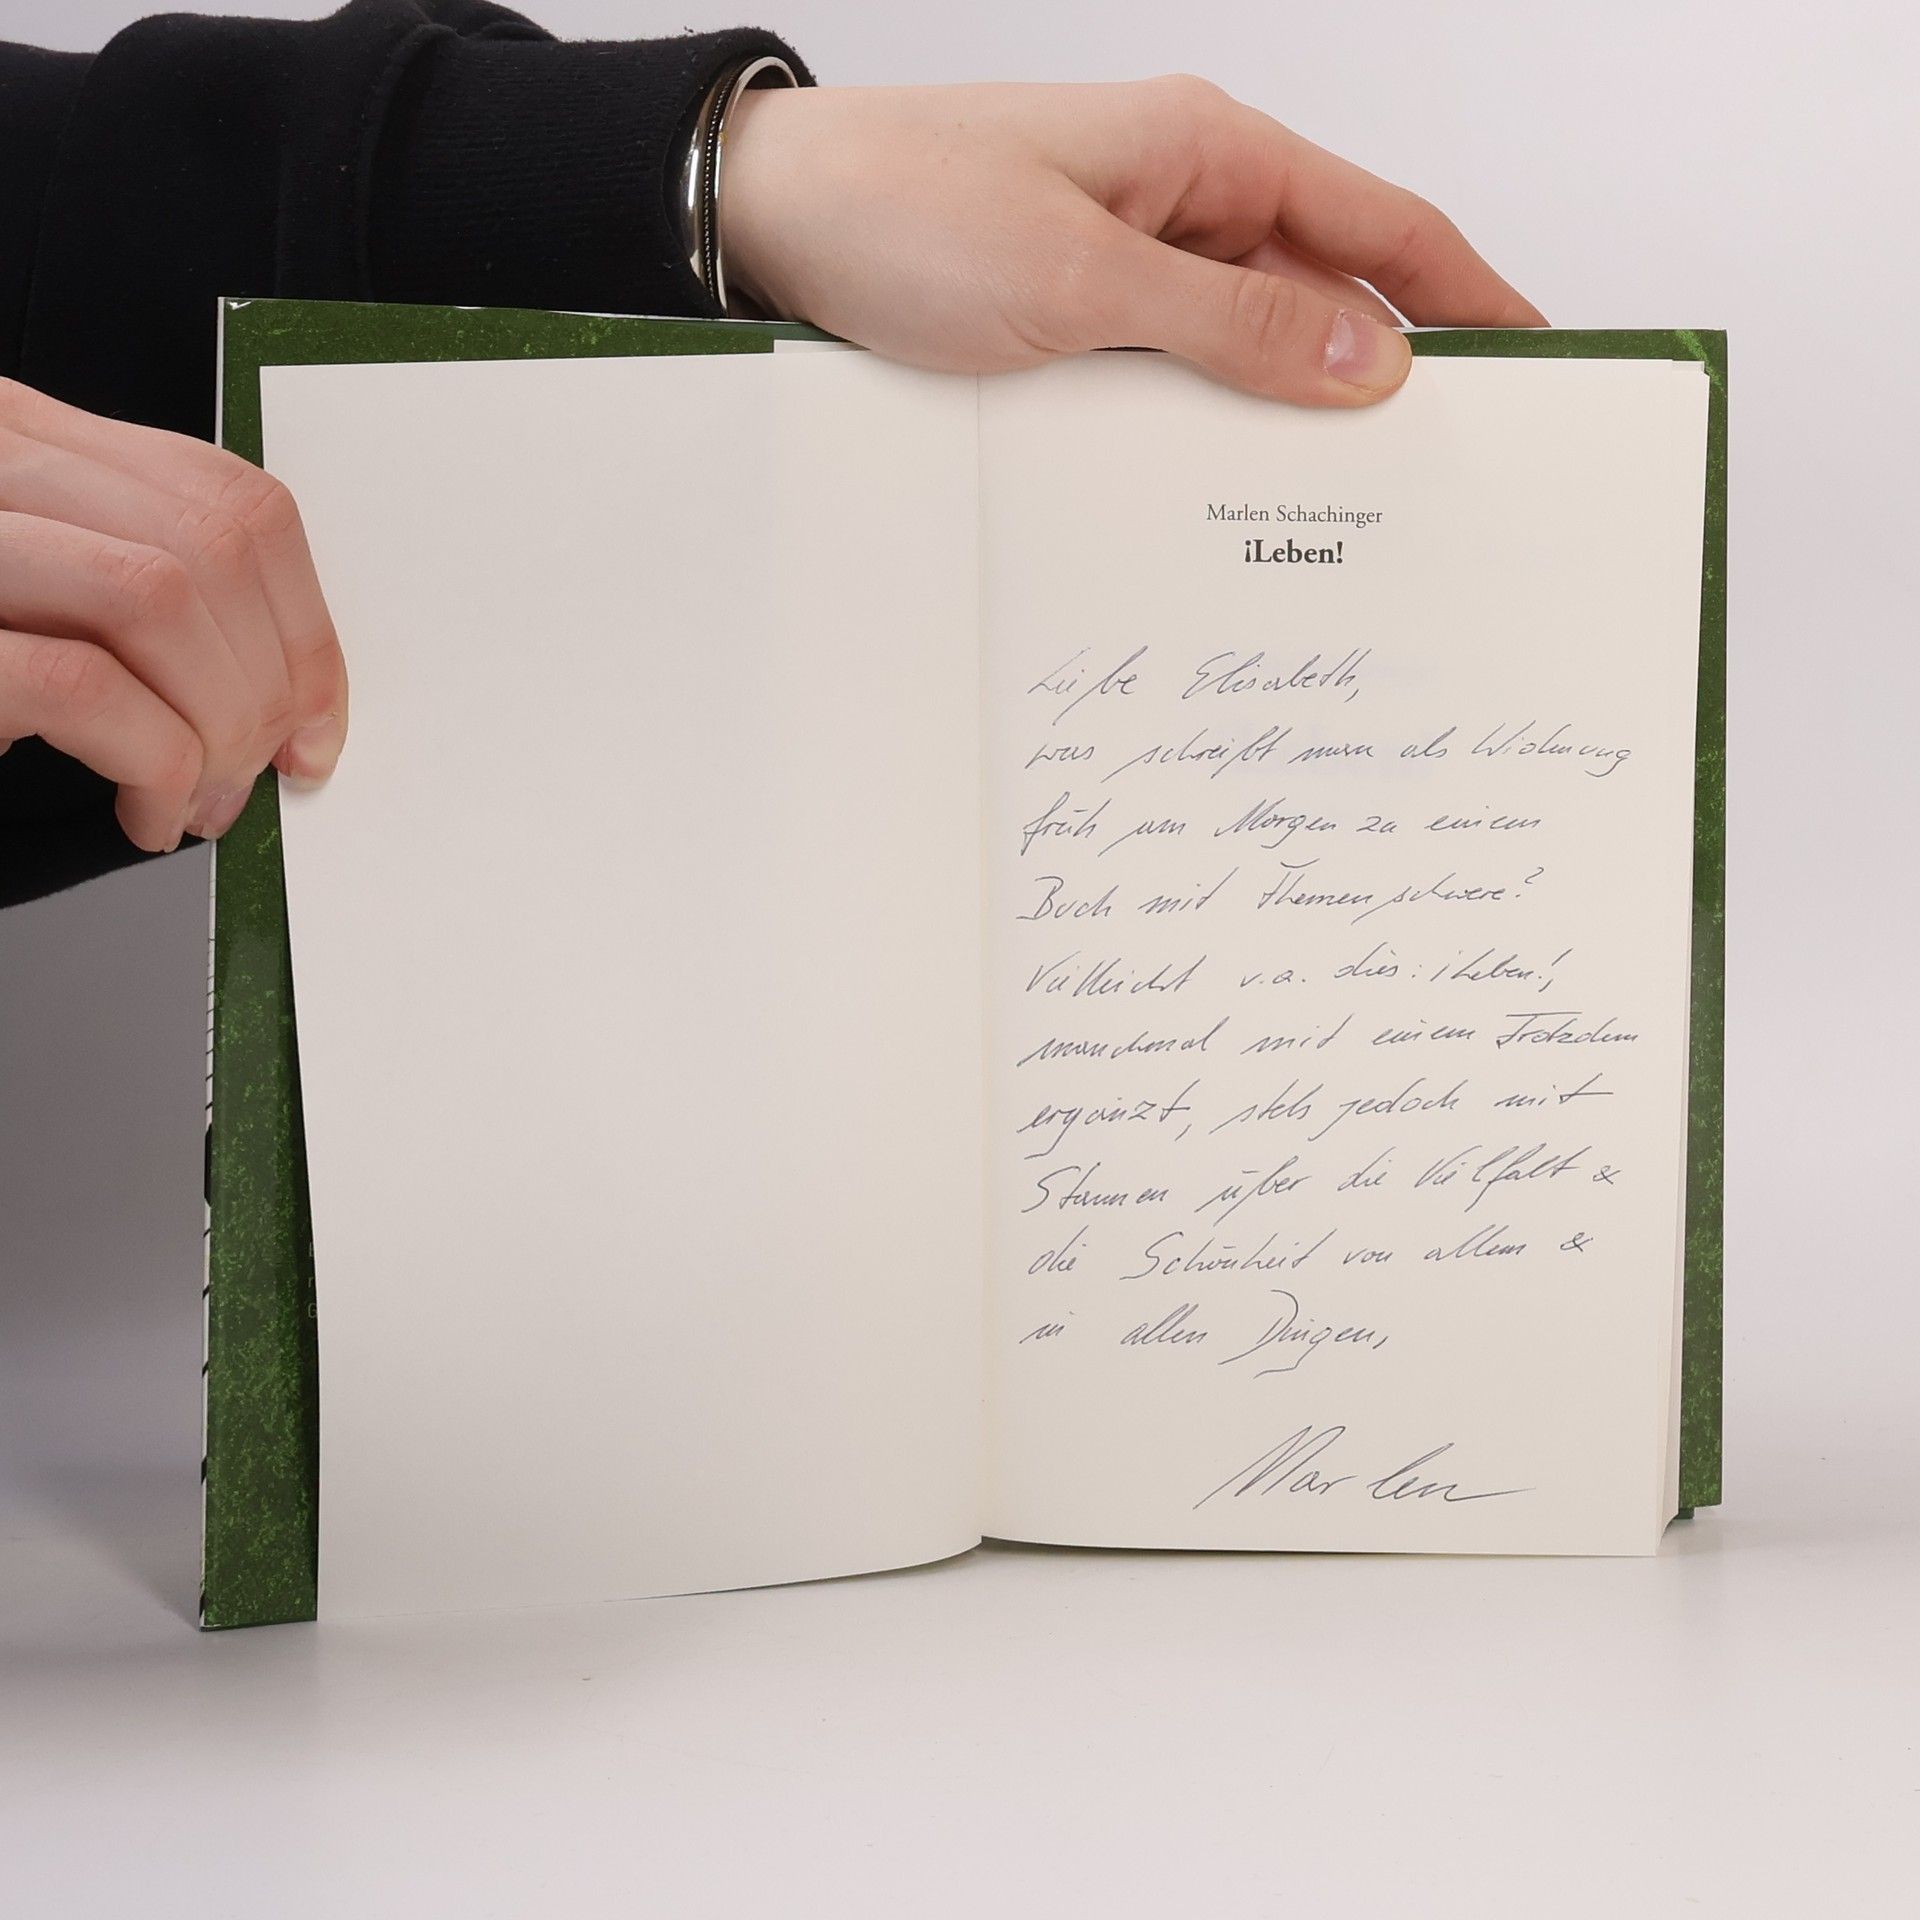 Marlen Schachinger
¡Leben!
Liebe Elisabeth,
was schreibt man als Widmung
früh am Morgen zu einem
Buch mit Themenschwere?
Vielleicht v.a. dies: ¡Leben!,
manchmal mit einem Trotzdem
ergänzt, stets jedoch mit
Staunen über die Vielfalt &
die Schönheit von allem &
in allen Dingen,
Marlen